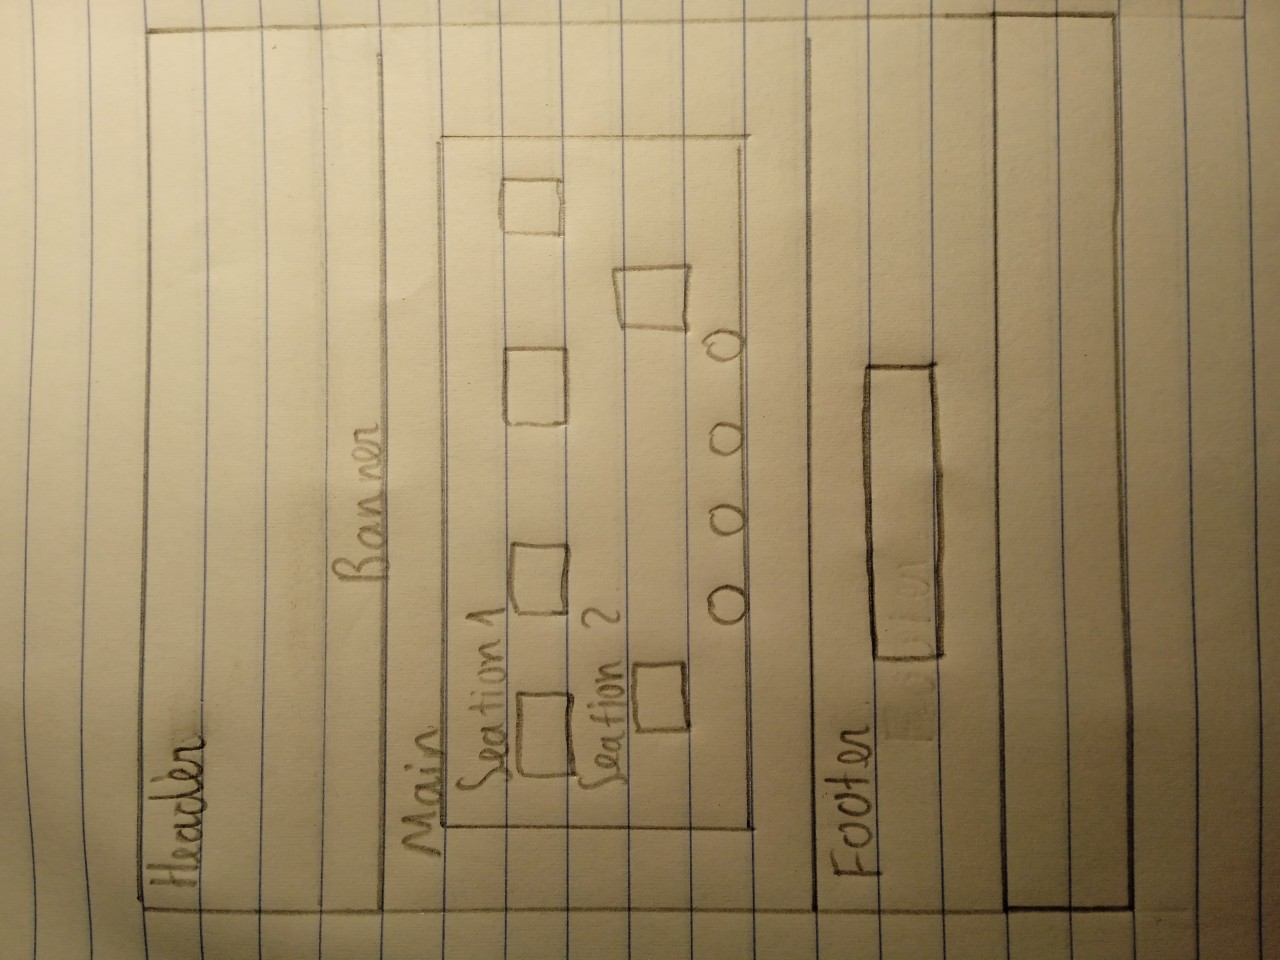 Header
Banner
Main
Seation 1
Seation 2
Footer